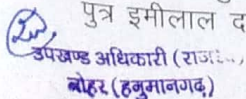 पुत्र इमीलाल द
उपखण्ड अधिकारी (राज॰
नोहर (हनुमानगढ़)